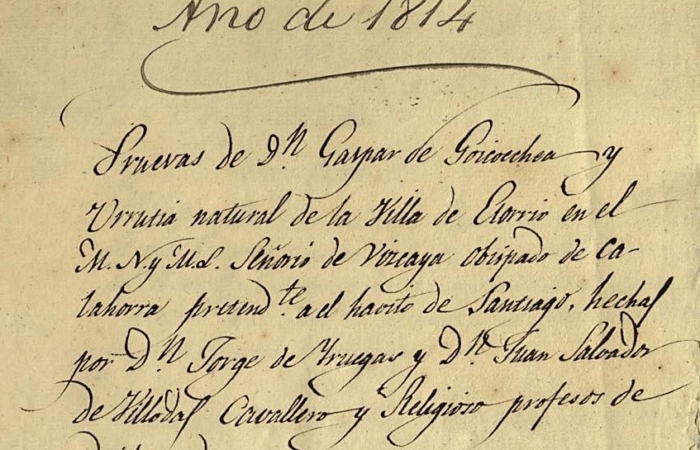 Año de 1814
Pruevas de Dn. Gaspar de Goicoechea y
Urrutia natural de la Villa de Elorrio en el
M. N. y M. L. Señorio de Vizcaya obispado de Ca-
lahorra pretendte. a el havito de Santiago, hechas
por Dn. Jorge de Yruegas y Dn. Juan Salvador
de Villodas Cavallero y Religioso profesos de